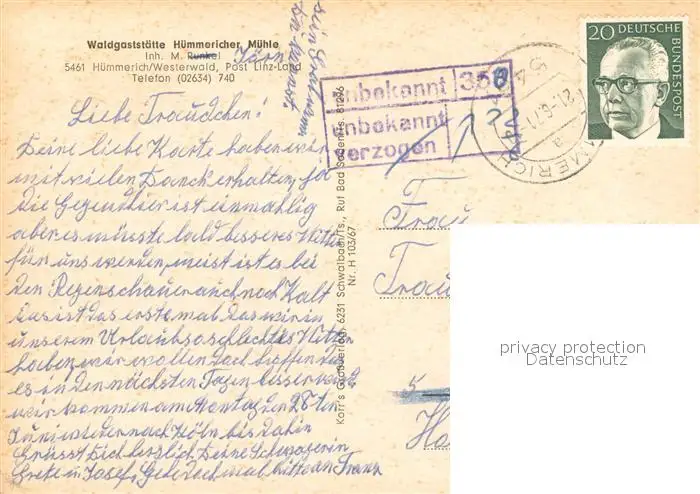 Waldgaststätte Hümmericher Mühle
Inh. M. Runkel
5461 Hümmerich/Westerwald, Post Linz-Land
Telefon (02634) 740
Liebe Traudchen!
Deine liebe Karte haben wir
mit vielen Danck erhalten, ja
die Gegend hier ist einmahlig
aber es müsste bald besseres Wetter
für uns werden, meist ist es bei
den Regenschauer auch noch Kalt
das ist das erste mal das wir in
unserem Urlaub so schlechtes Wetter
haben, wir wollen doch hoffen das
es in den nächsten Tagen besser wird
wir kommen am Montag den 28 ten
Juni wieder nach Köln bis dahin
Grüsst Dich herzlich Deine Schwägerin
Grete u Josef, Gebe doch mal bitte an Franz
unbekannt 358
unbekannt
verzogen
20 DEUTSCHE
BUNDESPOST
21.-6.71
a
Frau
5
Korr's Großverlag, 6231 Schwalbach/Ts., Ruf Bad Soden/Ts. 81296
Nr. H 103/67
privacy protection
Datenschutz